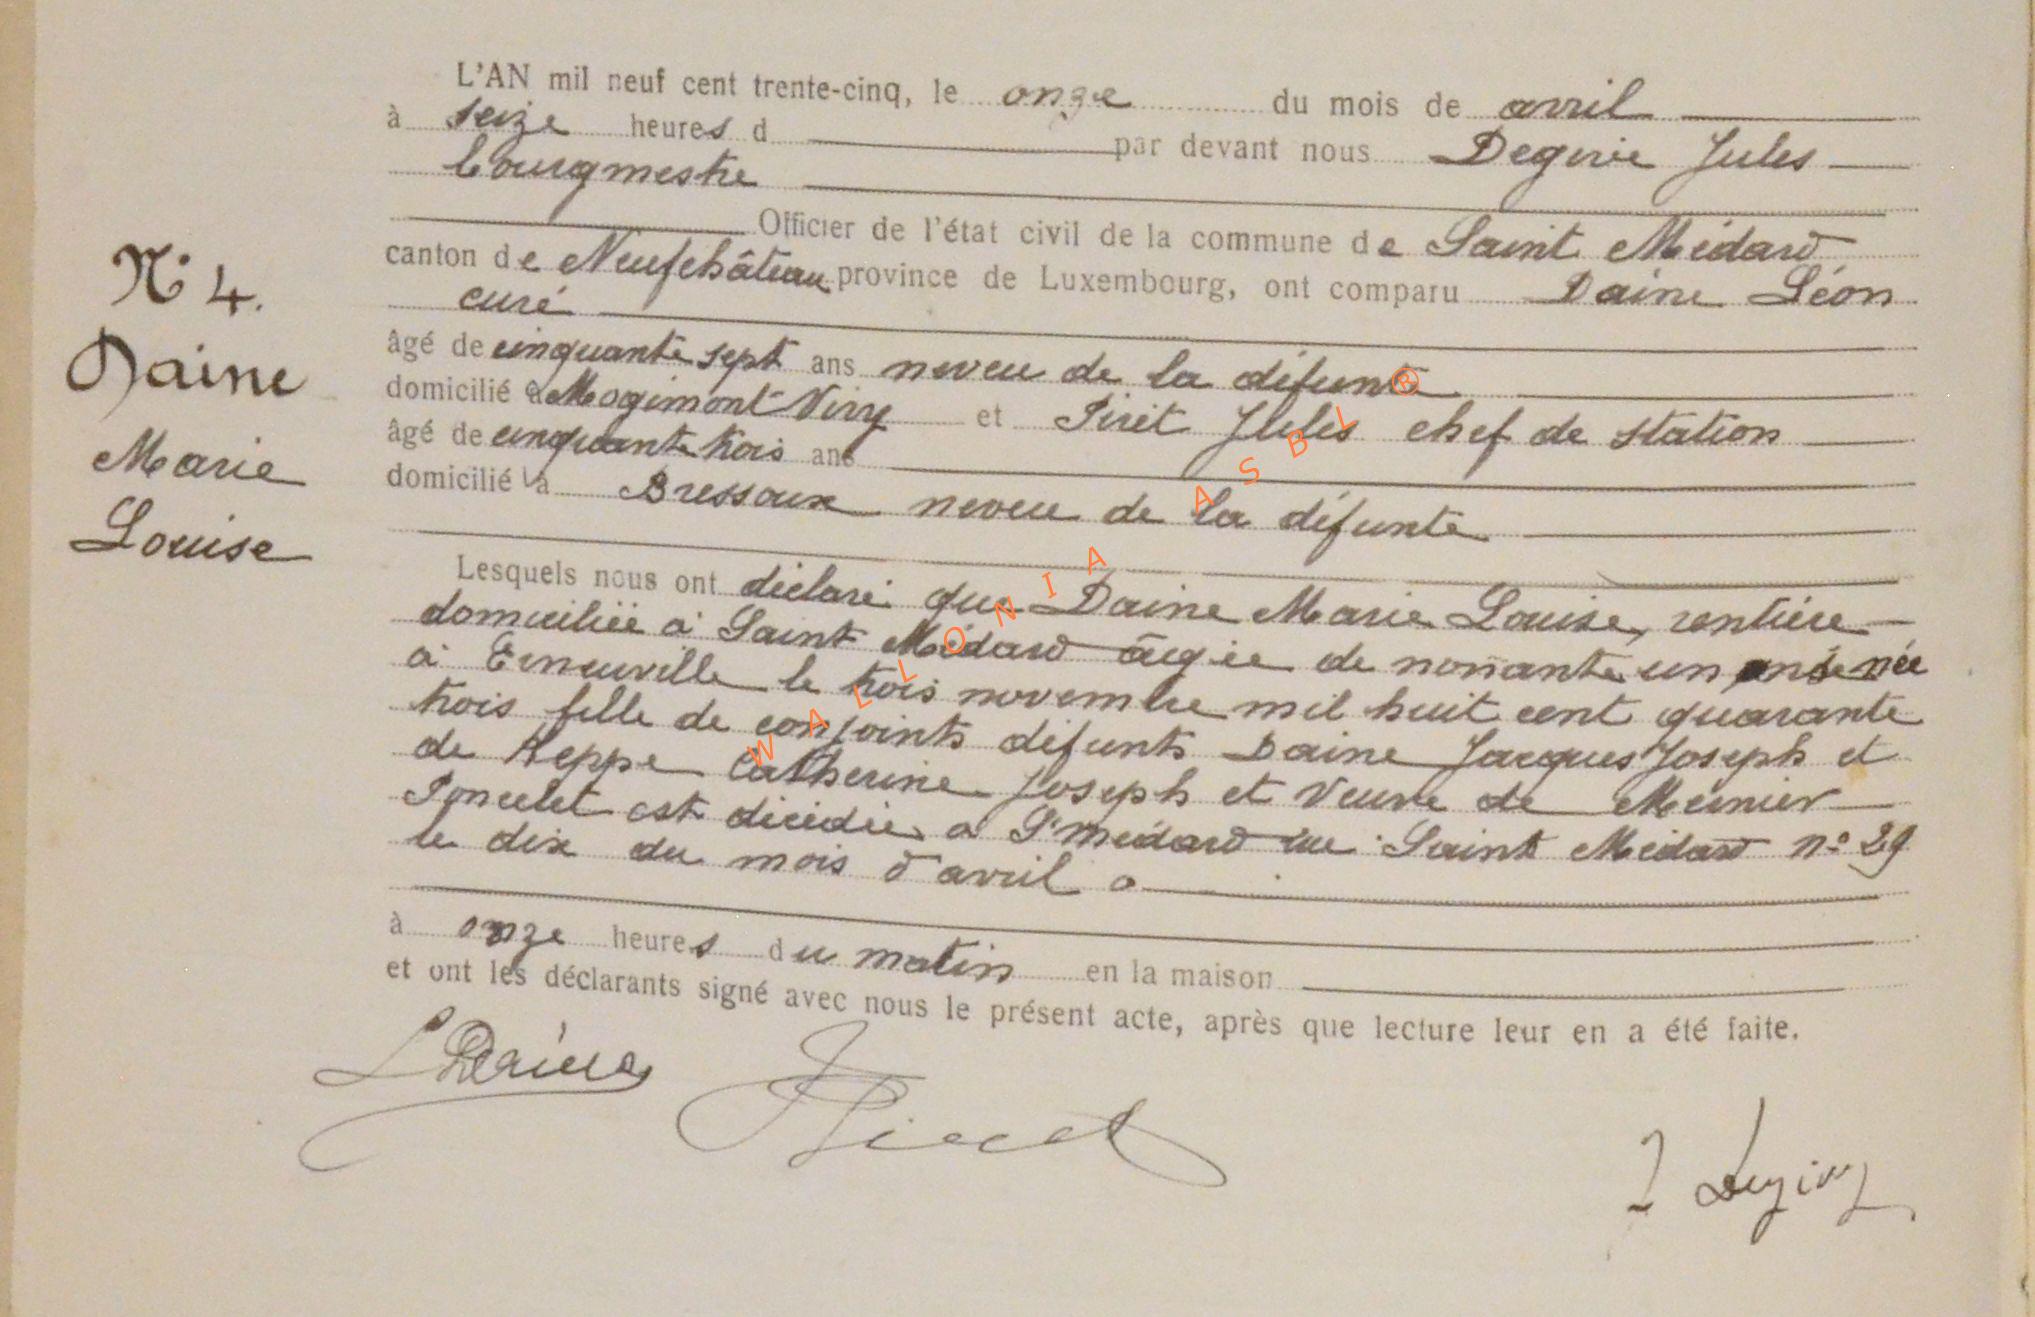 L'AN mil neuf cent trente-cinq, le onze du mois de avril
à seize heures d par devant nous Degivie Jules
bourgmestre
Officier de l'état civil de la commune de Saint Médard
canton de Neufchâteau province de Luxembourg, ont comparu Daine Léon
curé
âgé de cinquante sept ans neveu de la défunte
domicilié à Mogimont Vivy et Piret Jules chef de station
âgé de cinquante trois ans
domicilié à Bressoux neveu de la défunte
Lesquels nous ont déclaré que Daine Marie Louise, rentière
domiciliée à Saint Médard âgée de nonante un ans née
à Erneuville le trois novembre mil huit cent quarante
trois fille de conjoints défunts Daine Jacques Joseph et
de Heppe Catherine Joseph et veuve de Meunier
Poncelet est décédée à St médard rue Saint Médard n° 29
le dix du mois d'avril a
à onze heures du matin en la maison
et ont les déclarants signé avec nous le présent acte, après que lecture leur en a été faite.
N° 4.
Daine
Marie
Louise
L Daine
J Piret
WALLONIA ASBL ®